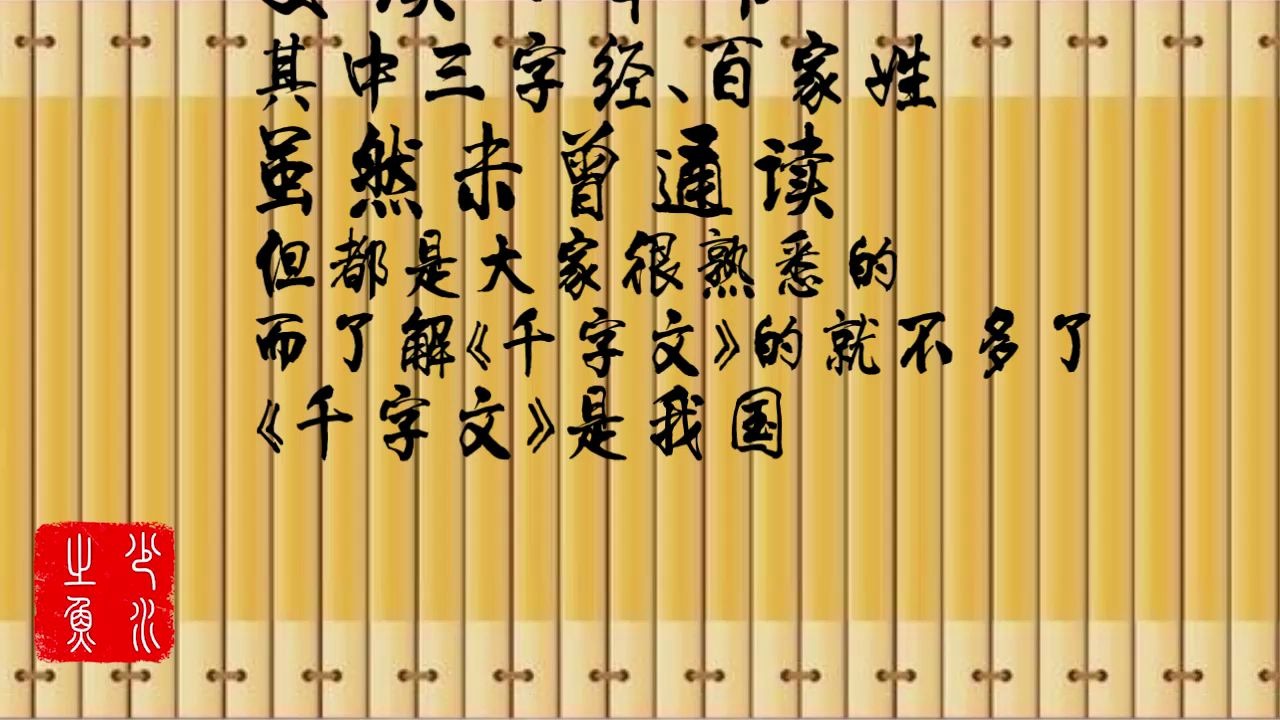 其中三字经、百家姓
虽然未曾通读
但都是大家很熟悉的
而了解《千字文》的就不多了
《千字文》是我国
少水之鱼